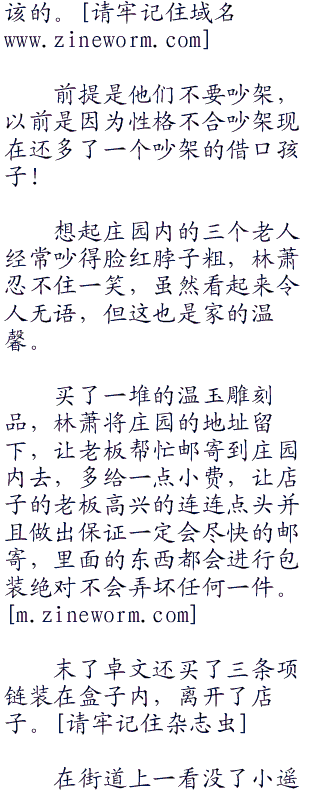 该的。[请牢记住域名
www.zineworm.com]
前提是他们不要吵架，
以前是因为性格不合吵架现
在还多了一个吵架的借口孩
子！
想起庄园内的三个老人
经常吵得脸红脖子粗，林萧
忍不住一笑，虽然看起来令
人无语，但这也是家的温
馨。
买了一堆的温玉雕刻
品，林萧将庄园的地址留
下，让老板帮忙邮寄到庄园
内去，多给一点小费，让店
子的老板高兴的连连点头并
且做出保证一定会尽快的邮
寄，里面的东西都会进行包
装绝对不会弄坏任何一件。
[m.zineworm.com]
末了卓文还买了三条项
链装在盒子内，离开了店
子。[请牢记住杂志虫]
在街道上一看没了小遥